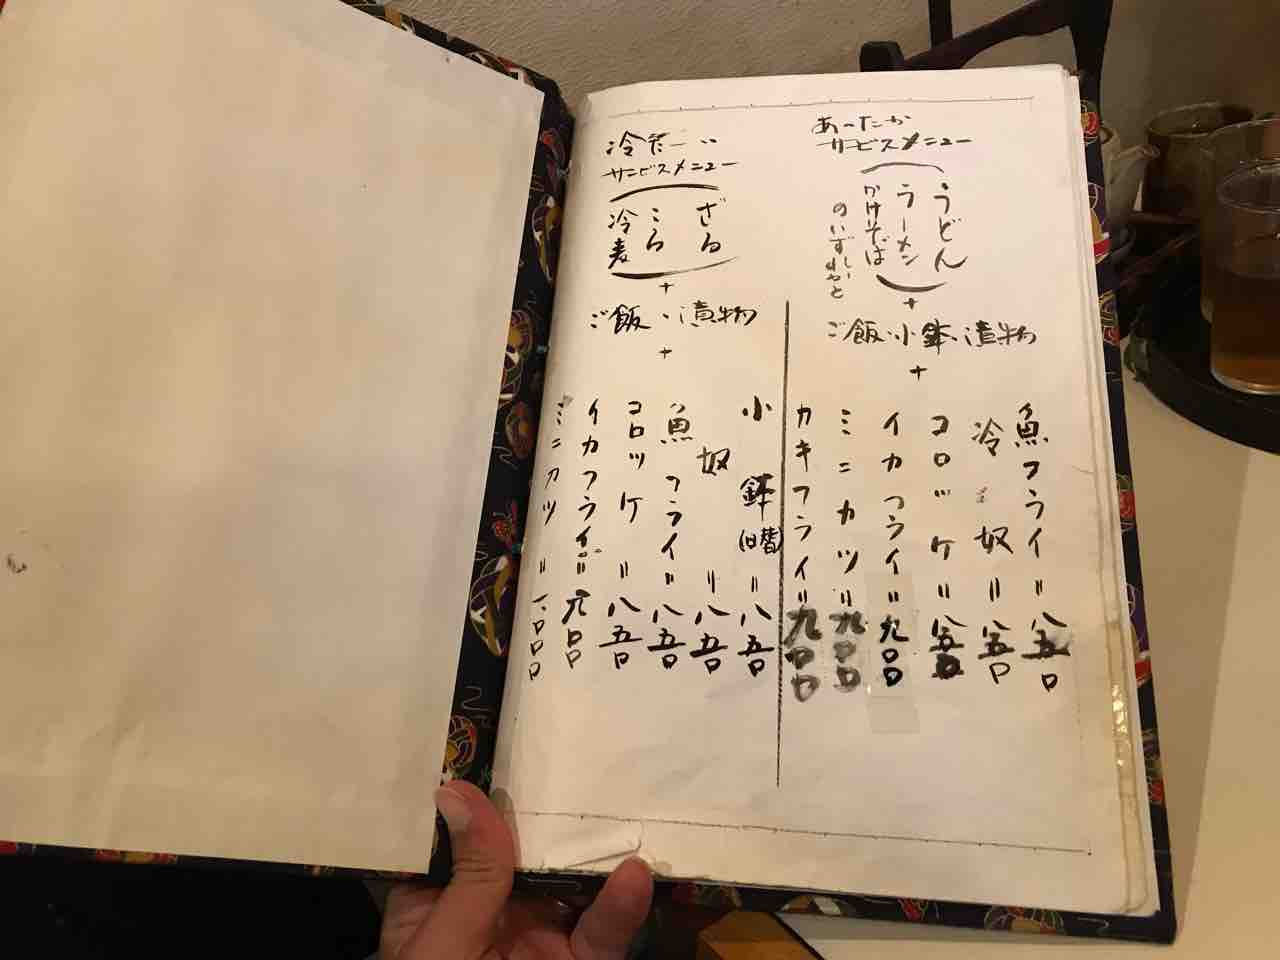 あったか
サービスメニュー
うどん
ラーメン
かけそば
のいずれかと
+
ご飯・小鉢・漬物
+
魚フライ=八五〇
冷奴=八五〇
コロッケ=八五〇
イカフライ=九〇〇
ミニカツ=九〇〇
カキフライ=九〇〇
サービスメニュー
ざる
ころ
冷麦
+
ご飯・漬物
+
小鉢(日替)=八五〇
奴=八五〇
魚フライ=八五〇
コロッケ=八五〇
イカフライ=九〇〇
ミニカツ=一、〇〇〇